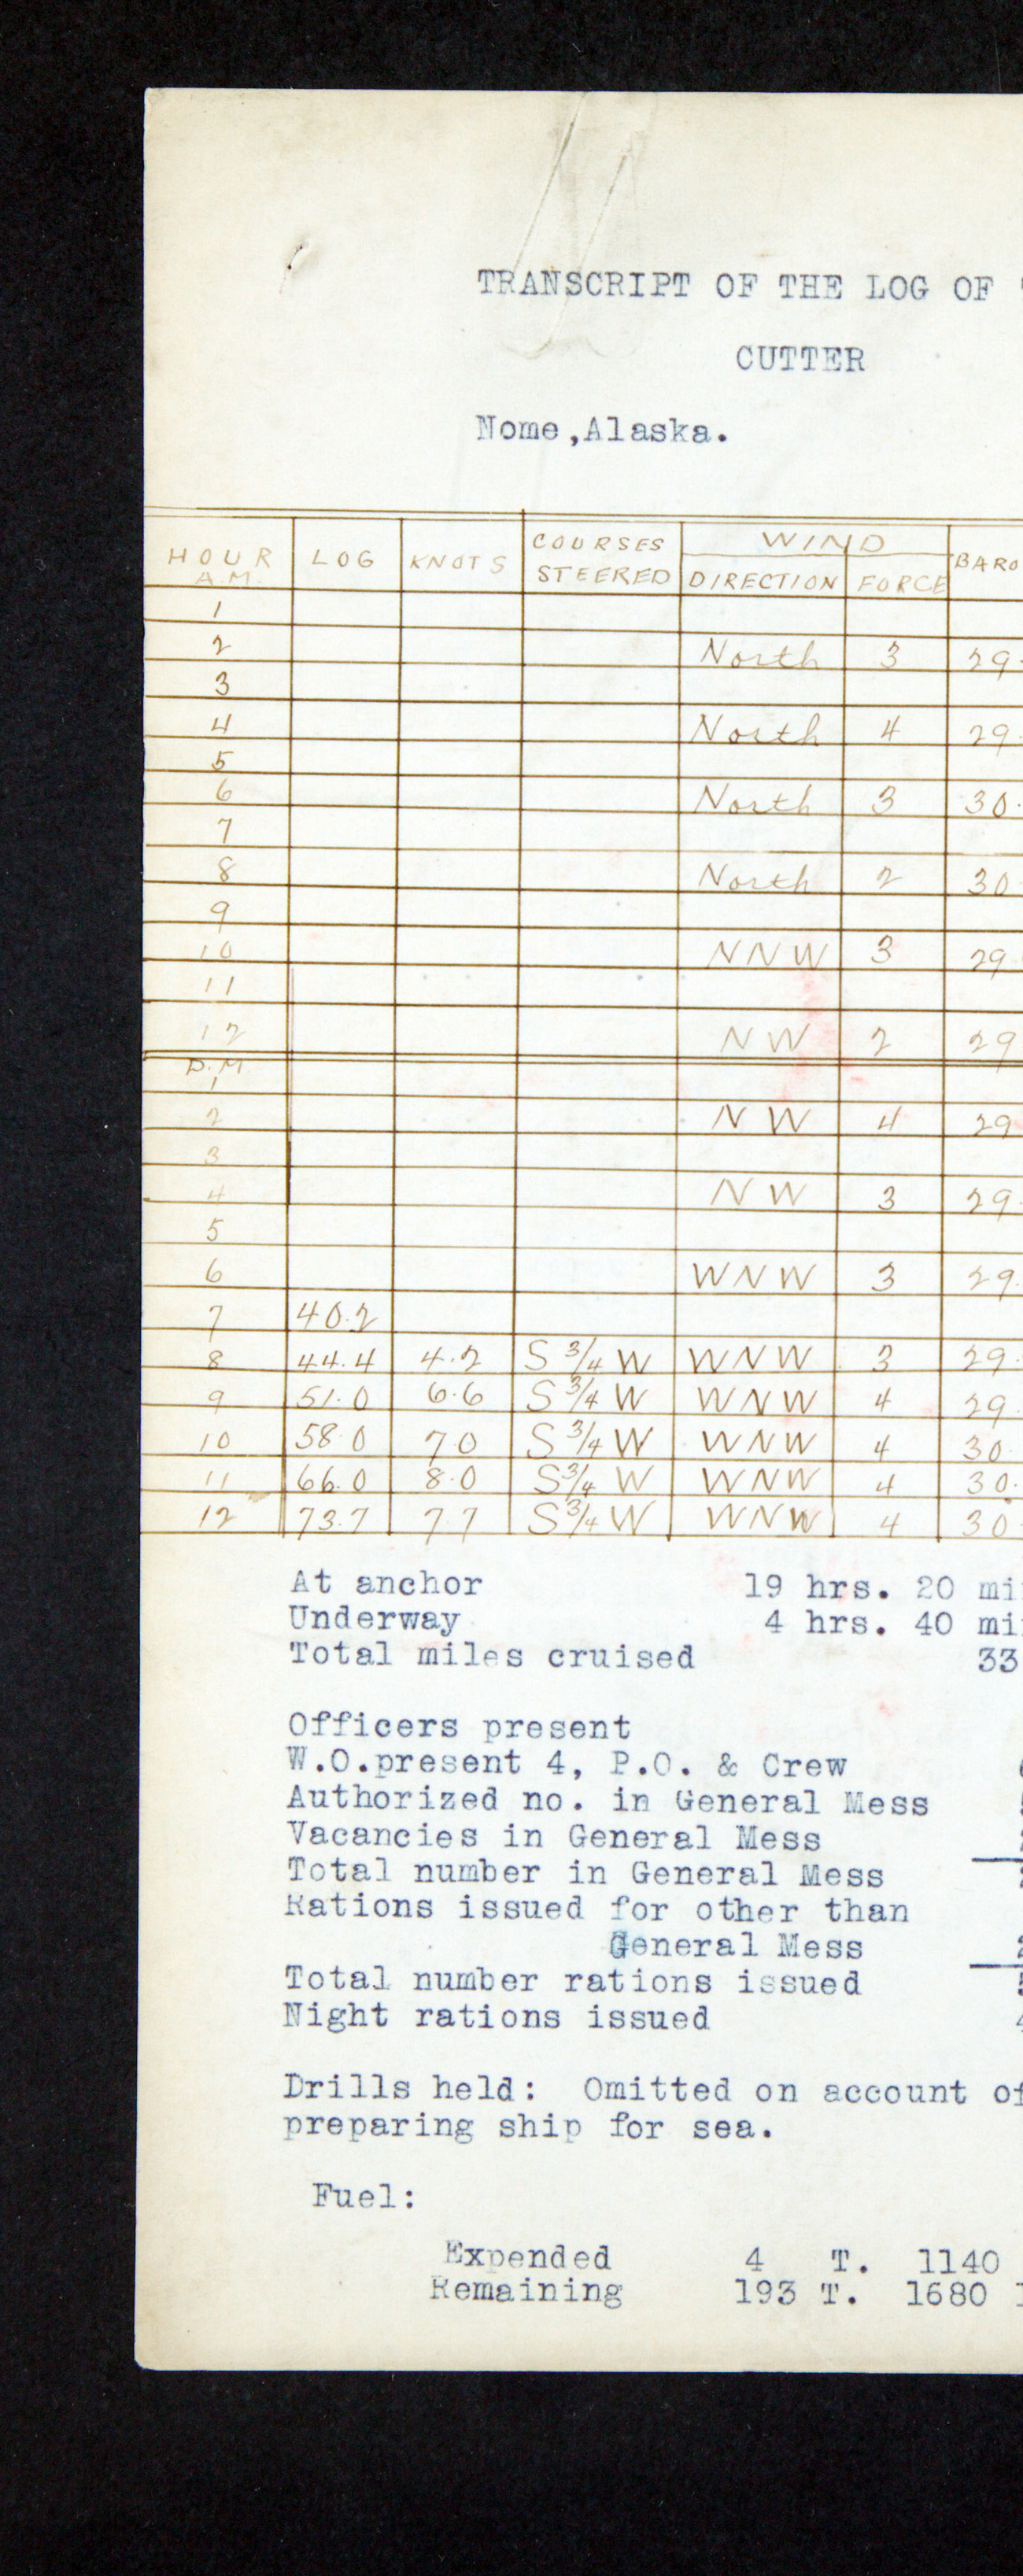 TRANSCRIPT OF THE LOG OF
CUTTER
Nome,Alaska.
HOUR LOG KNOTS COURSES STEERED WIND BARO
A.M. DIRECTION FORCE
1
2 North 3 29.
3
4 North 4 29.
5
6 North 3 30.
7
8 North 2 30
9
10 NNW 3 29
11
12 NW 2 29
P.M
1
2 NW 4 29
3
4 NW 3 29.
5
6 WNW 3 29.
7 40.2
8 44.4 4.2 S 3/4 W WNW 3 29.
9 51.0 6.6 S 3/4 W WNW 4 29.
10 58 0 7 0 S 3/4 W WNW 4 30.
11 66.0 8.0 S 3/4 W WNW 4 30.
12 73.7 7 7 S 3/4 W WNW 4 30
At anchor 19 hrs. 20 mi
Underway 4 hrs. 40 mi
Total miles cruised 33
Officers present
W.O.present 4, P.O. & Crew
Authorized no. in General Mess
Vacancies in General Mess
Total number in General Mess
Rations issued for other than
General Mess
Total number rations issued
Night rations issued
Drills held: Omitted on account of
preparing ship for sea.
Fuel:
Expended 4 T. 1140
Remaining 193 T. 1680